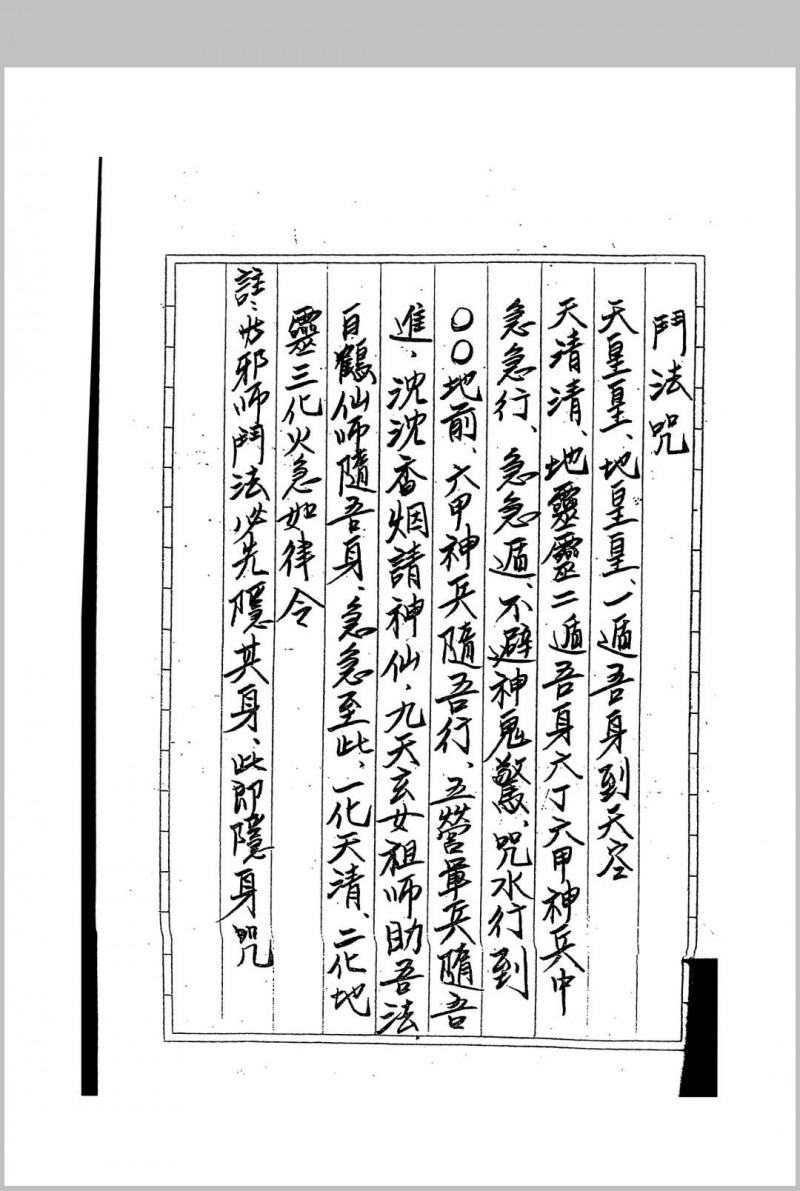 鬥法咒
天皇皇、地皇皇、一遁吾身到天空
天清清、地靈靈二遁吾身六丁六甲神兵中
急急行、急急遁、不避神鬼驚、咒水行到
〇〇地前、六甲神兵隨吾行、五營軍兵隨吾
進、沈沈香烟請神仙、九天玄女祖師助吾法
白鶴仙師隨吾身、急急至此、一化天清、二化地
靈三化火急如律令
註：邪師鬥法必先隱其身、此即隱身咒